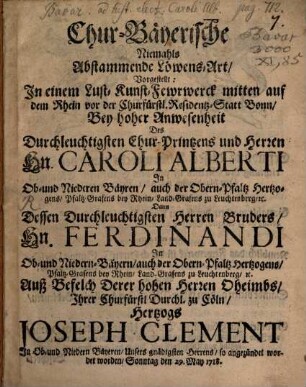 Bavar.
7.
Bavar
3000
XI,85
Chur-Bäyerische
Niemahls
Abstammende Löwens-Art/
Vorgestellt:
In einem Lust-Kunst-Fewrwerck mitten auf
dem Rhein vor der Churfürstl. Residentz-Statt Bonn/
Bey hoher Anwesenheit
Des
Durchleuchtigsten Chur-Printzens und Herren
Hn. CAROLI ALBERTI
In
Ob-und Niederen Bäyren/ auch der Obern-Pfaltz Hertzo-
gens/ Pfaltz-Grafens bey Rhein/ Land-Grafens zu Leuchtenberg/ ꝛc.
Dessen Durchleuchtigsten Herren Bruders/
Hn. FERDINANDI
In
Ob-und Niedern-Bäyern/ auch der Obern-Pfaltz Hertzogens/
Pfaltz-Grafens bey Rhein/ Land-Grafens zu Leuchtenberg/ ꝛc.
Auß Befelch Derer hohen Herren Oheimbs/
Ihrer Churfürstl Durchl. zu Cöln/
Hertzogs
JOSEPH CLEMENT
In Ob-und Niedern Bäyeren/ Unsers gnädigsten Herrens/ so angezündet wor-
det worden/ Sonntag den 29. May 1718.